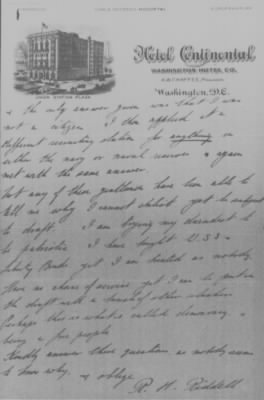 Hotel Continental
WASHINGTON HOTEL CO.
UNION STATION PLAZA
Washington, D.C.
& the only answer given was that I was
not a citizen. I then applied at a
different recruiting station for anything in
either the navy or naval reserve & again
met with the same answer.
Not any of these gentlemen have been able to
tell me why I cannot enlist yet be subject
to draft. I am trying my darndest to
be patriotic. I have bought U.S.
Liberty Bonds yet I am
have no chance of service yet I am to
the draft with a bunch of other
Perhaps this is what is called democracy &
being a free people
Kindly answer these questions as nobody seems
to know why & oblige
R. H. Riddell